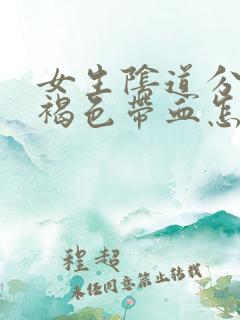 女生阴道分
褐色带血怎
程超
未经同意禁止转载